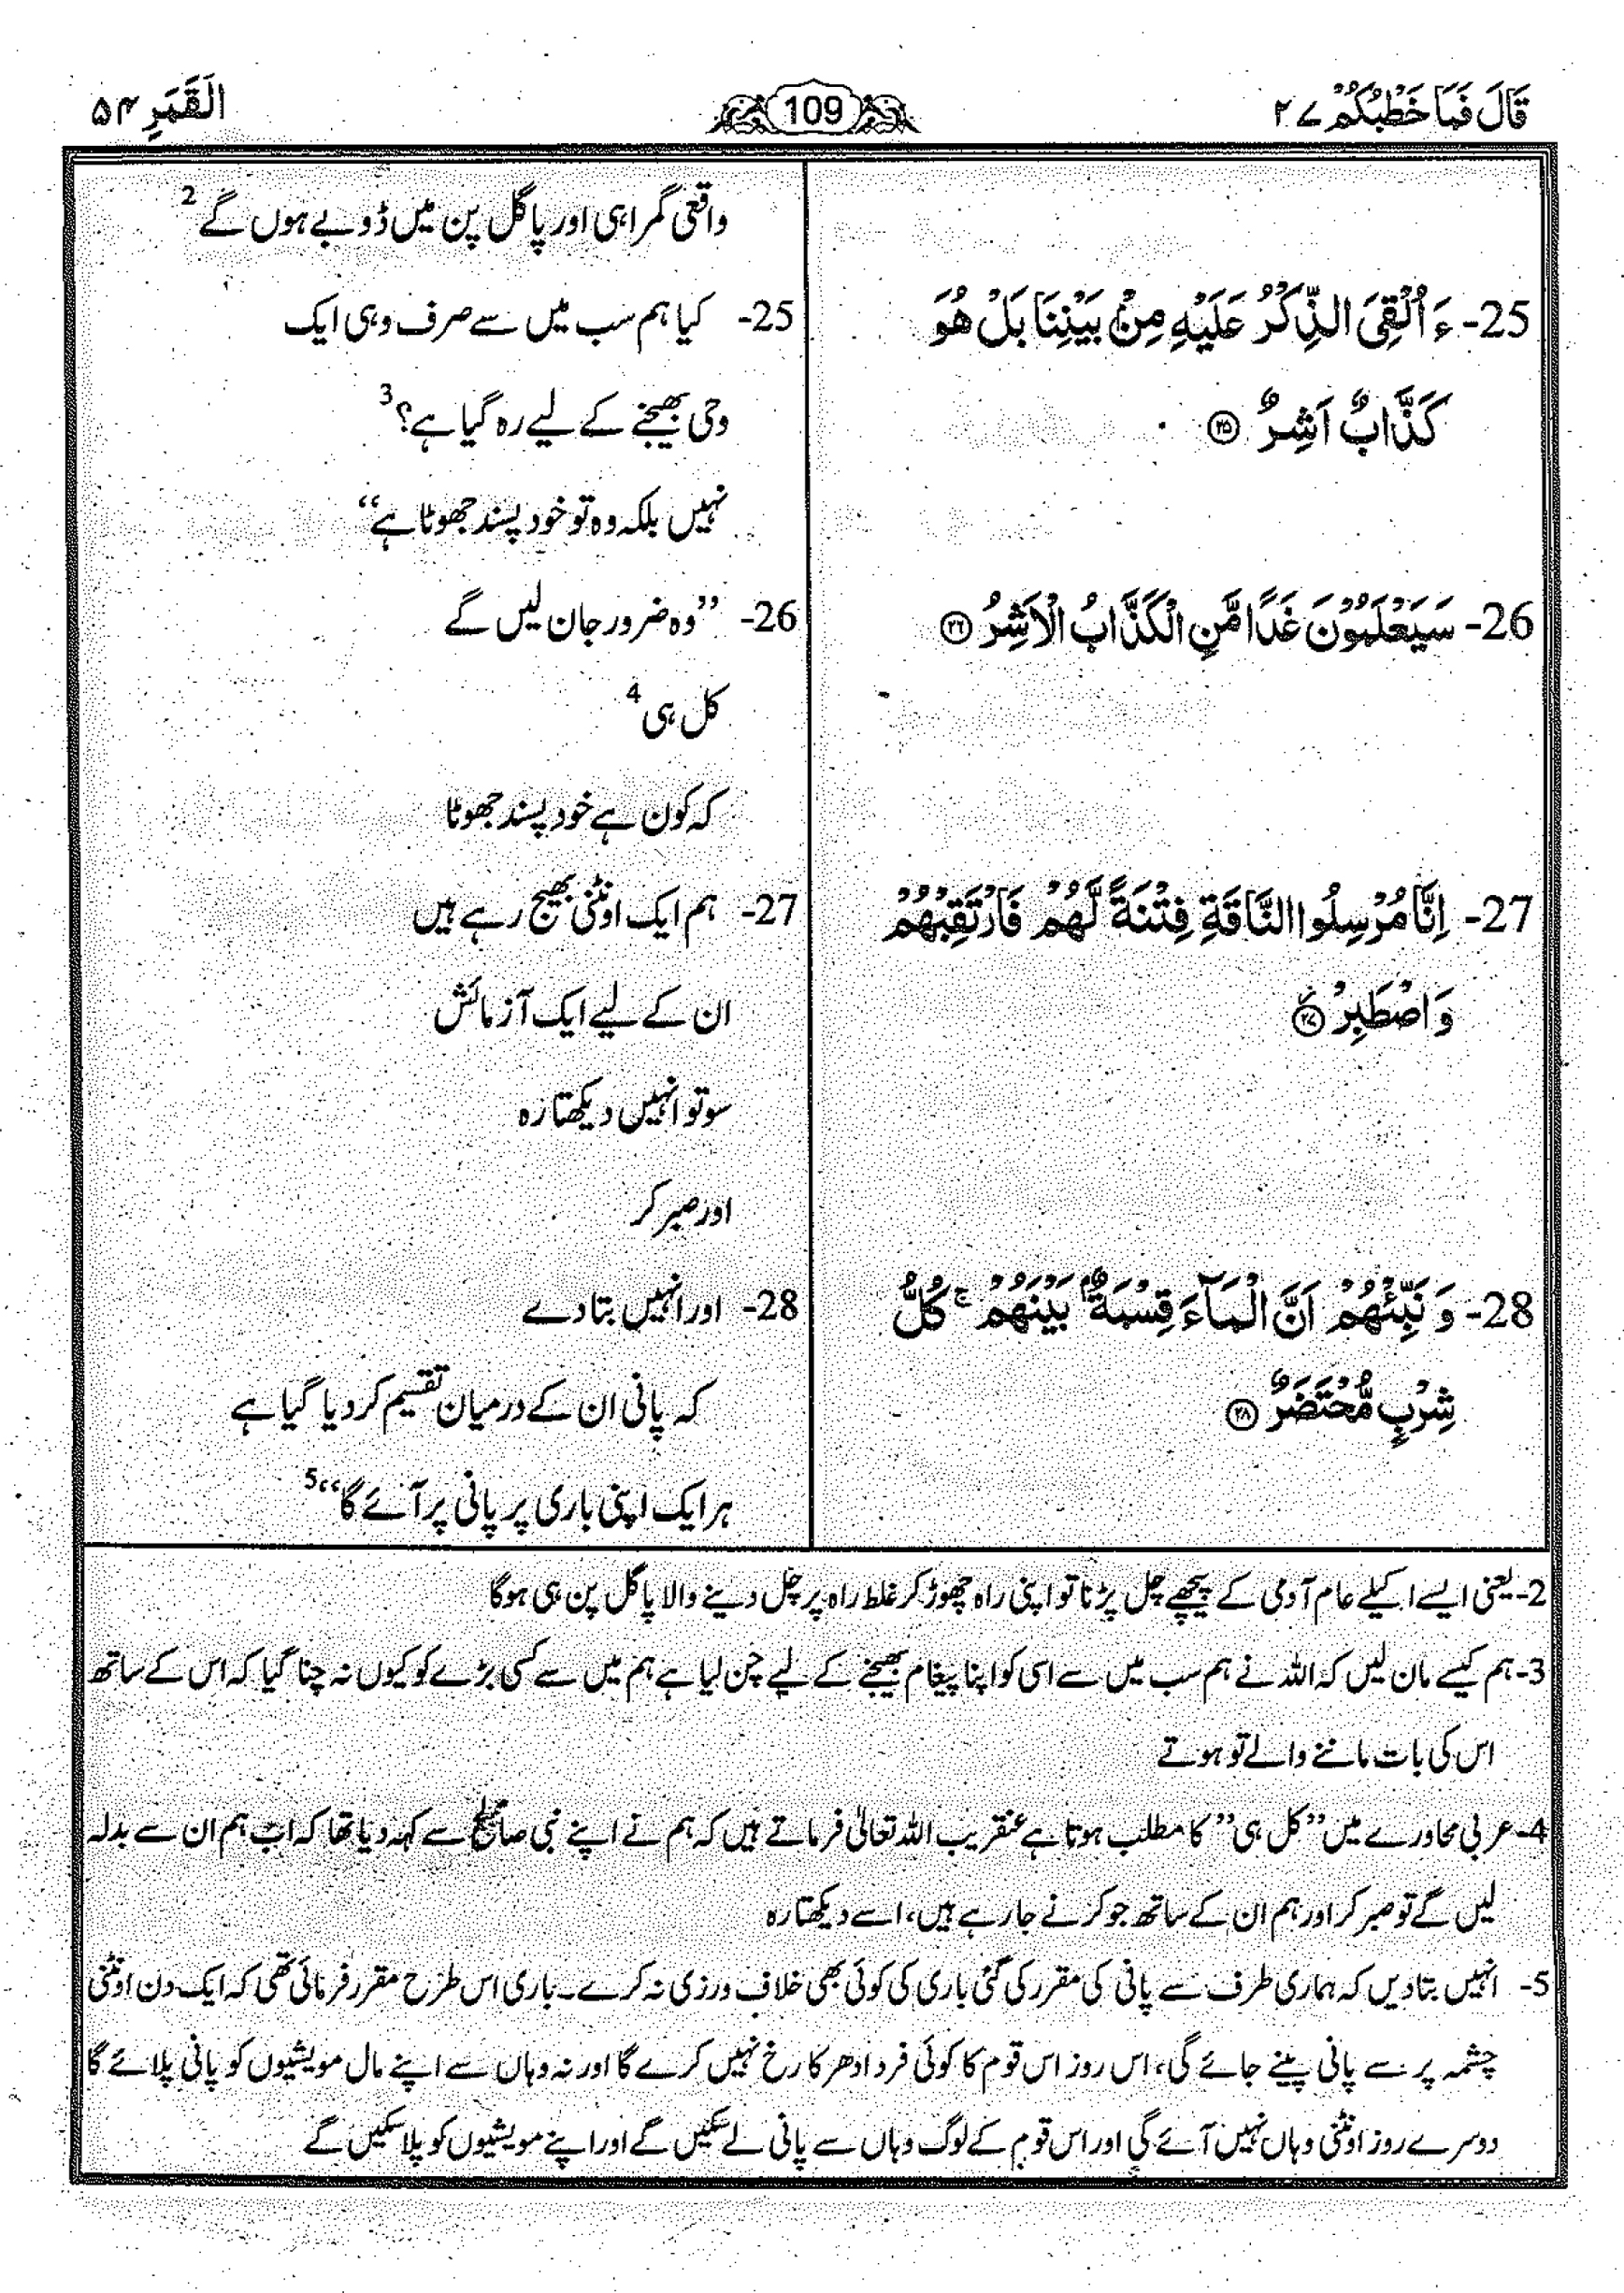 قَالَ فَمَا خَطْبُكُمْ ٢٧
109
اَلْقَمَرِ ۵۴
25- ءَ اُلْقِيَ الذِّكْرُ عَلَيْهِ مِنْۢ بَيْنِنَا بَلْ هُوَ
كَذَّابٌ اَشِرٌ ۝۲۵
26- سَيَعْلَمُوْنَ غَدًا مَّنِ الْكَذَّابُ الْاَشِرُ ۝۲۶
27- اِنَّا مُرْسِلُوا النَّاقَةِ فِتْنَةً لَّهُمْ فَارْتَقِبْهُمْ
وَ اصْطَبِرْ ۝۲۷
28- وَ نَبِّئْهُمْ اَنَّ الْمَآءَ قِسْمَةٌۢ بَيْنَهُمْ ۚ كُلُّ
شِرْبٍ مُّحْتَضَرٌ ۝۲۸
واقعی گمراہی اور پاگل پن میں ڈوبے ہوں گے 2
25- کیا ہم سب میں سے صرف وہی ایک
وحی بھیجنے کے لیے رہ گیا ہے؟ 3
نہیں بلکہ وہ تو خود پسند جھوٹا ہے‘‘
26- ’’وہ ضرور جان لیں گے
کل ہی 4
کہ کون ہے خود پسند جھوٹا
27- ہم ایک اونٹنی بھیج رہے ہیں
ان کے لیے ایک آزمائش
سو تو انہیں دیکھتا رہ
اور صبر کر
28- اور انہیں بتا دے
کہ پانی ان کے درمیان تقسیم کر دیا گیا ہے
ہر ایک اپنی باری پر پانی پر آئے گا‘‘ 5
2- یعنی ایسے اکیلے عام آدمی کے پیچھے چل پڑنا تو اپنی راہ چھوڑ کر غلط راہ پر چل دینے والا پاگل پن ہی ہوگا
3- ہم کیسے مان لیں کہ اللہ نے ہم سب میں سے اسی کو اپنا پیغام بھیجنے کے لیے چن لیا ہے ہم میں سے کسی بڑے کو کیوں نہ چنا گیا کہ اس کے ساتھ
اس کی بات ماننے والے تو ہوتے
4- عربی محاورے میں ’’کل ہی‘‘ کا مطلب ہوتا ہے عنقریب اللہ تعالیٰ فرماتے ہیں کہ ہم نے اپنے نبی صالحؑ سے کہہ دیا تھا کہ اب ہم ان سے بدلہ
لیں گے تو صبر کر اور ہم ان کے ساتھ جو کرنے جا رہے ہیں، اسے دیکھتا رہ
5- انہیں بتا دیں کہ ہماری طرف سے پانی کی مقرر کی گئی باری کی کوئی بھی خلاف ورزی نہ کرے۔ باری اس طرح مقرر فرمائی تھی کہ ایک دن اونٹنی
چشمہ پر سے پانی پینے جائے گی، اس روز اس قوم کا کوئی فرد ادھر کا رخ نہیں کرے گا اور نہ وہاں سے اپنے مال مویشیوں کو پانی پلائے گا
دوسرے روز اونٹنی وہاں نہیں آئے گی اور اس قوم کے لوگ وہاں سے پانی لے سکیں گے اور اپنے مویشیوں کو پلا سکیں گے